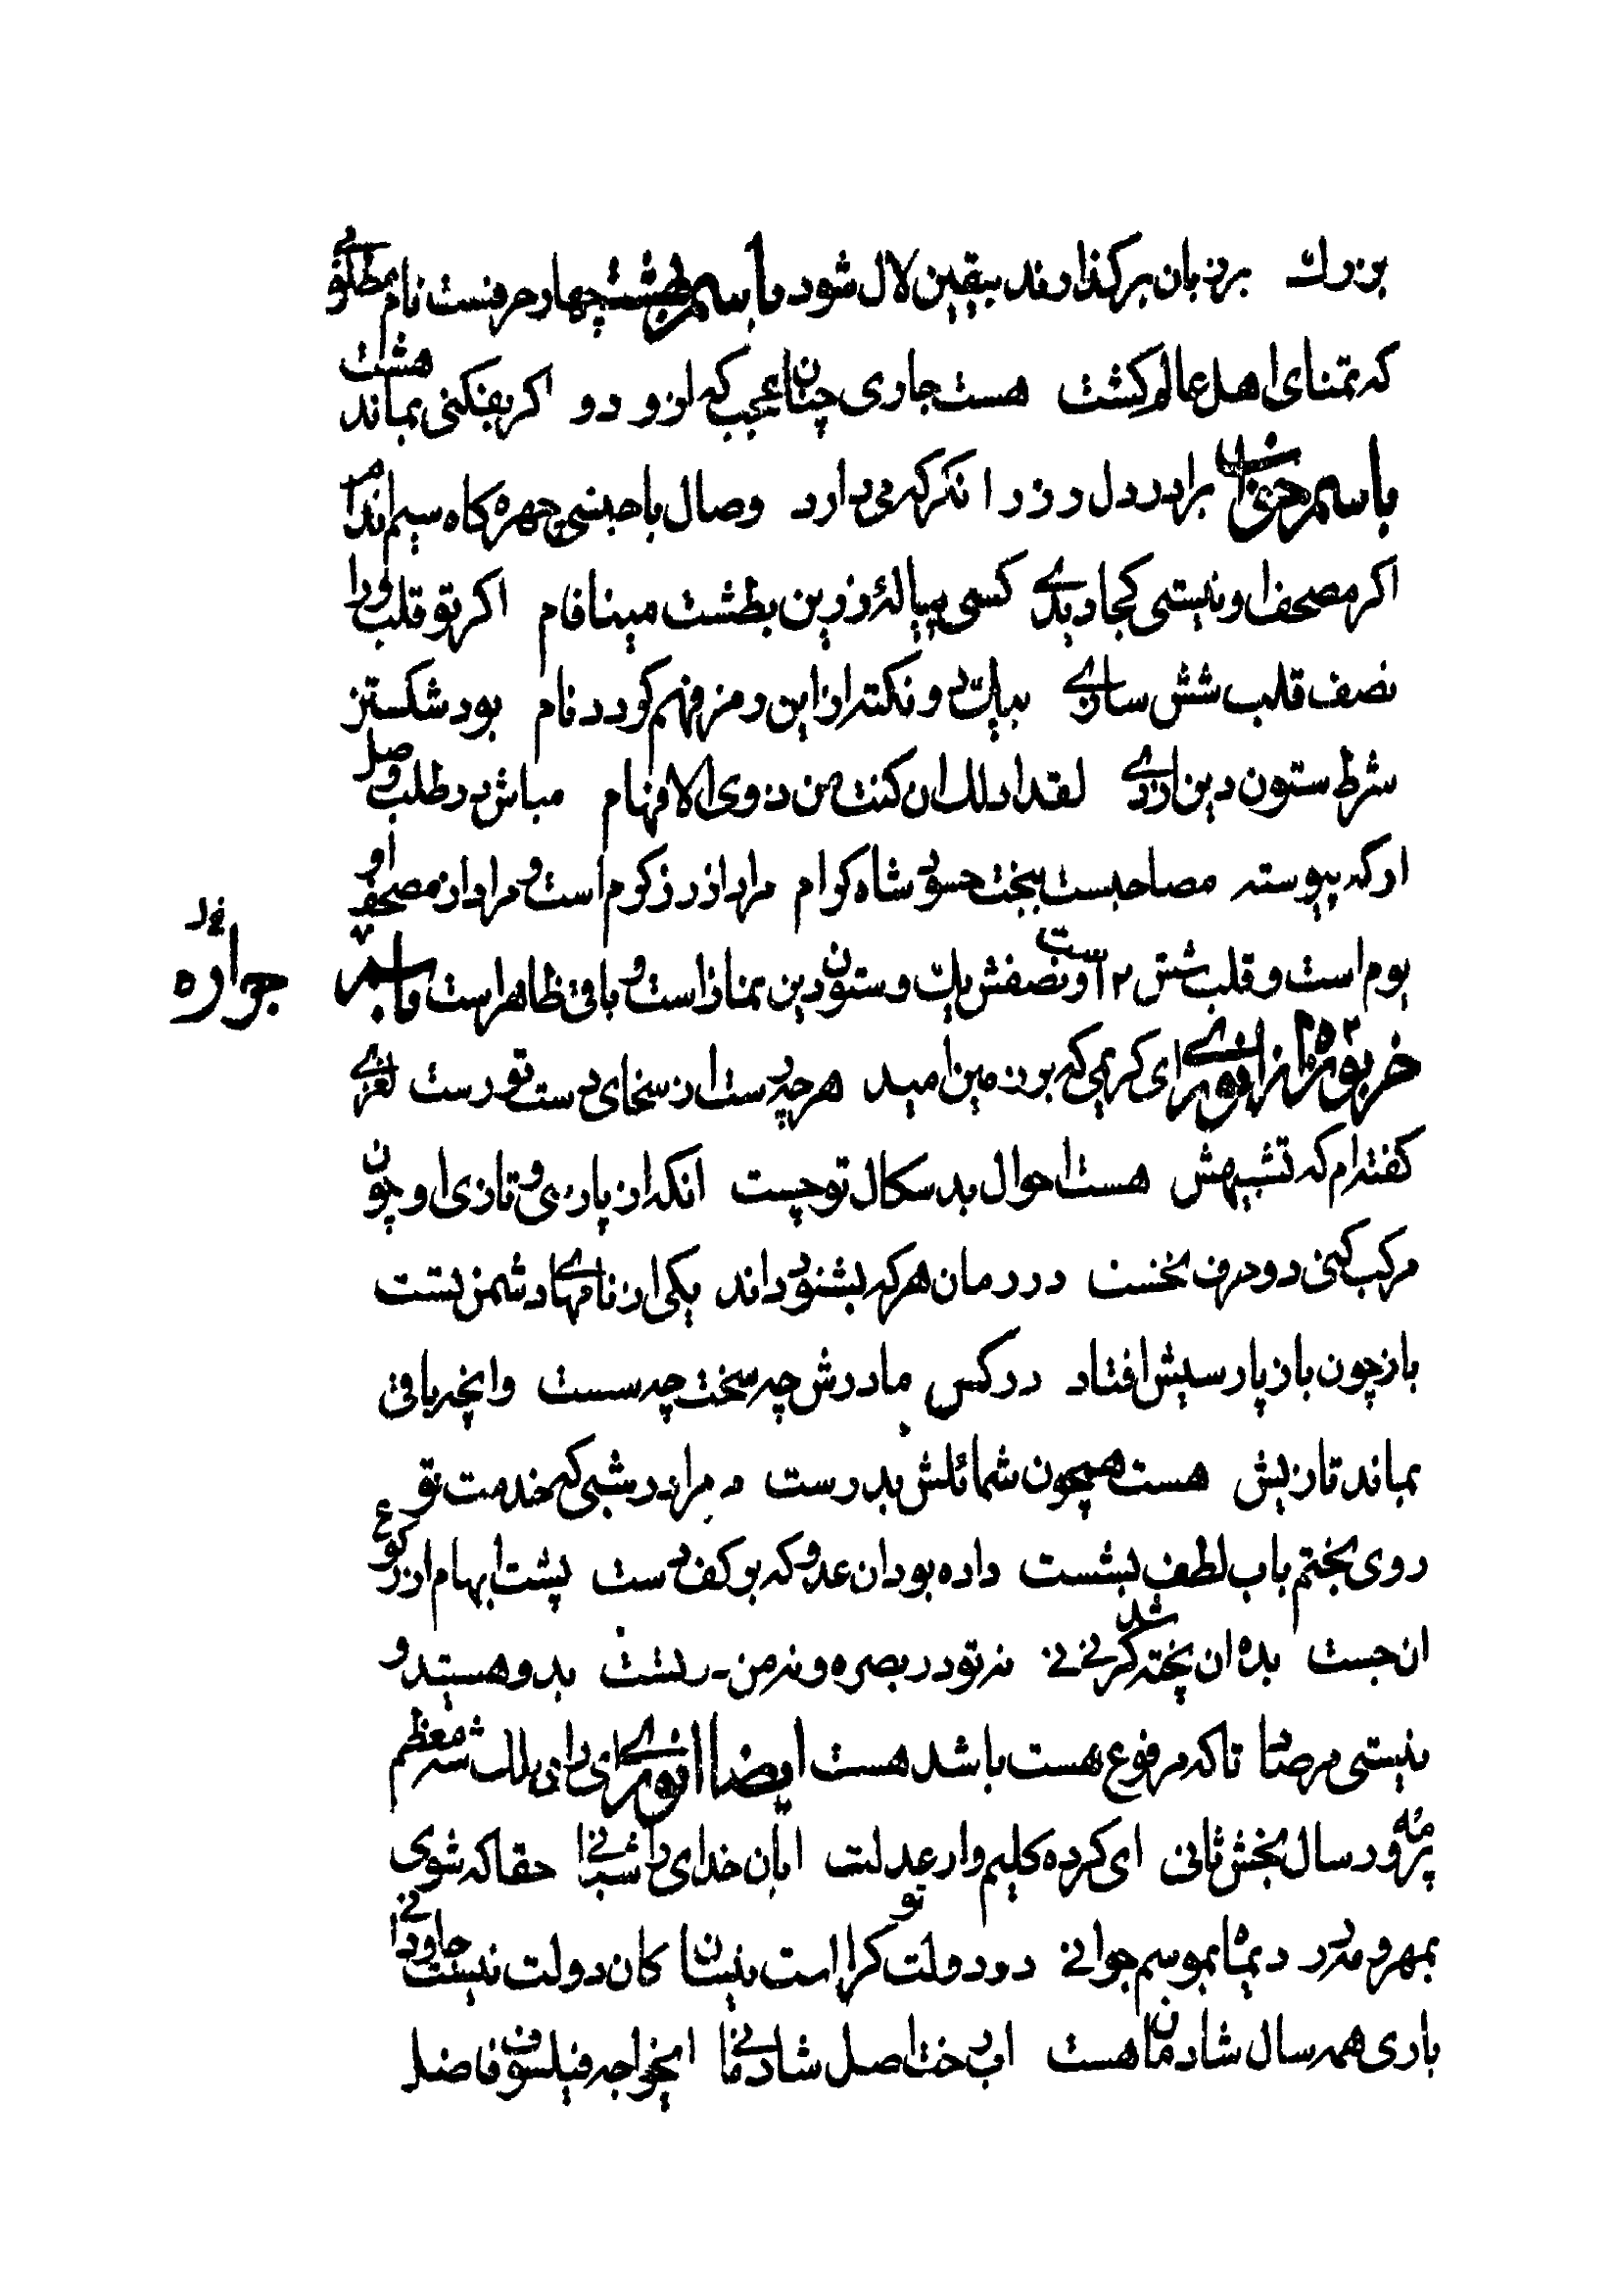 بزرك برزبان برکذارند بیقین لال شود باسم بهشت چهار حرفست نام مطلوبی
که تمنای اهل عالم کشت هست جاری چنان عجب که از و دو اکر بفکنی بماند هشت
باسم برادر دل رز را نکر که می دارد وصال با حبشی چهره کاه سیم اندام
اکر مصحف او نیستی کجا دیدی کسی پیالهٔ زرین بطشت مینا فام اکر تو قلب ورا
نصف قلب شش سازی بیابی دو نکته از این رمز فهم کودد نام بود شکستن
شرط ستون دین اری لقد ادلك ان کنت من ذوی الافهام مباش در طلب وصل
او که پیوسته مصاحبست ببخت حسود شاه کوام مراد از رز کوم است و مراد از مصحف او
یوم است و قلب شش ۲ است و نصفش یك و ستون دین نماز است و باقی ظاهر است باسم
جواره
خربوزه انوری ای کریمی که بر زمین امید هرچه رست از سخای دست تو رست لغزی
کفته ام که تشبیهش هست احوال بدسکال تو چست انکه از پارسی و تازی او چون
مرکب کنی دو حرف نخست در زمان هر که بشنود داند یکی از نامهای دشمن تست
باز چون باز پارسیش افتاد در کس مادرش چه سخت چه سست وانچه باقی
بماند تازیش هست همچون شمائلش بدرست مر مرا در شبی که خدمت تو
روی بختم باب لطف بشست داده بود ان عدو که بر کف دست پشت ابهام از رکوع
ان جست بده ان پخته شد کرنی نی نه تو در بصره و نه من در تست بد و هستند و
نیستی مرصاد تا که مرفوع هست باشد هست ایضا انوری ای رای ملك شه معظم
پرور سال بخش ثانی ای کرده کلیم وار عدلت ابان خدای را شبانی حقا که شوی
بمهر و مه بر دیماه بموسم جوانی در دولت تو کرا است نیسان کان دولت نیست جاودانی
باری همه سال شادمان هست اب دخت اصل شادمانی ایخواجه فیلسوف فاضل